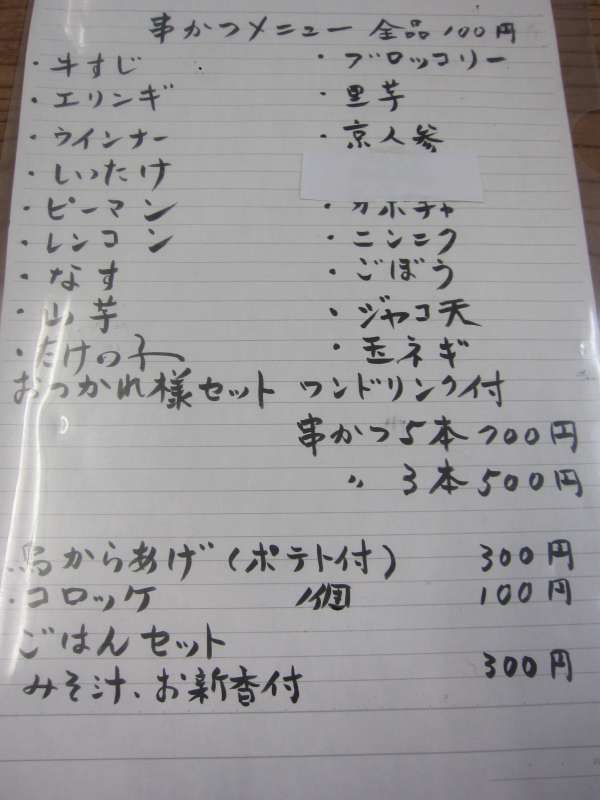 串かつメニュー 全品100円
・牛すじ ・ブロッコリー
・エリンギ ・里芋
・ウインナー ・京人参
・しいたけ
・ピーマン カボチャ
・レンコン ・ニンニク
・なす ・ごぼう
・山芋 ・ジャコ天
・たけの子 ・玉ネギ
おつかれ様セット ワンドリンク付
串かつ5本 700円
〃 3本 500円
・鳥からあげ(ポテト付) 300円
・コロッケ 1個 100円
ごはんセット
みそ汁、お新香付 300円